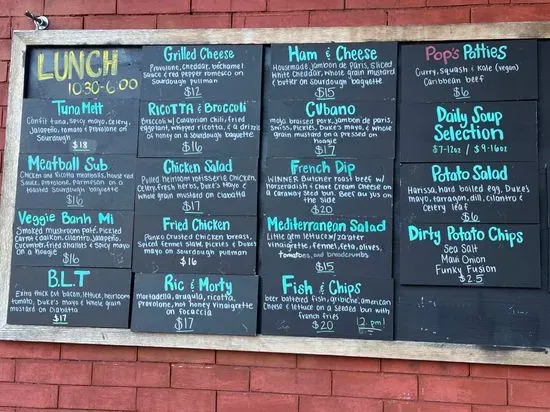 LUNCH
10:30-6:00
Tuna Melt
Confit tuna, spicy mayo, celery,
Jalapeño, tomato + provolone on
Sourdough
$18
Meatball Sub
Chicken and Ricotta meatballs, house red
Sauce, provolone, Parmesan on a
toasted sourdough baguette
$16
Veggie Banh Mi
Smoked mushroom pate, Pickled
Carrot + daikon, cilantro, jalapeño,
Cucumber, fried shallots & spicy mayo
on a hoagie
$16
B.L.T
Extra thick cut bacon, lettuce, heirloom
tomato, Duke's mayo & whole grain
mustard on Ciabatta
$17
Grilled Cheese
Provolone, cheddar, béchamel
Sauce & red pepper romesco on
Sourdough pullman
$12
Ricotta & Broccoli
Broccoli w/ Calabrian chili, fried
eggplant, whipped ricotta, & a drizzle
of honey on a sourdough baguette
$16
Chicken Salad
Pulled heirloom rotisserie chicken,
Celery, fresh herbs, Duke's Mayo &
whole grain mustard on ciabatta
$17
Fried Chicken
Panko Crusted Chicken breast,
Spiced fennel slaw, pickles & Duke's
mayo on Sourdough pullman
$16
Ric & Morty
mortadella, arugula, ricotta,
provolone, hot honey vinaigrette
on focaccia
$17
Ham & Cheese
Housemade jambon de Paris, sliced
White Cheddar, whole grain mustard
& butter on Sourdough baguette
$15
Cubano
mojo braised pork, jambon de paris,
Swiss, pickles, Duke's mayo & whole
grain mustard on a pressed on
hoagie
$17
French Dip
WINNER Butcher roast beef w/
horseradish & Chive Cream Cheese on
a Caraway Seed bun. Beef au jus on
the side
$20
Mediterranean Salad
Little gem lettuce w/ zaatar
vinaigrette, fennel, feta, olives,
tomatoes, and breadcrumbs
$15
Fish & Chips
beer battered fish, gribiche, american
Cheese & lettuce on a seeded bun with
french fries
$20
12 pm!
Pop's Patties
Curry, squash & Kale (vegan)
Caribbean beef
$6
Daily Soup
Selection
$7-12oz / $9-16oz
Potato Salad
Harissa, hard boiled egg, Duke's
mayo, tarragon, dill, cilantro &
celery leaf
$6
Dirty Potato Chips
Sea Salt
Maui Onion
Funky Fusion
$2.5